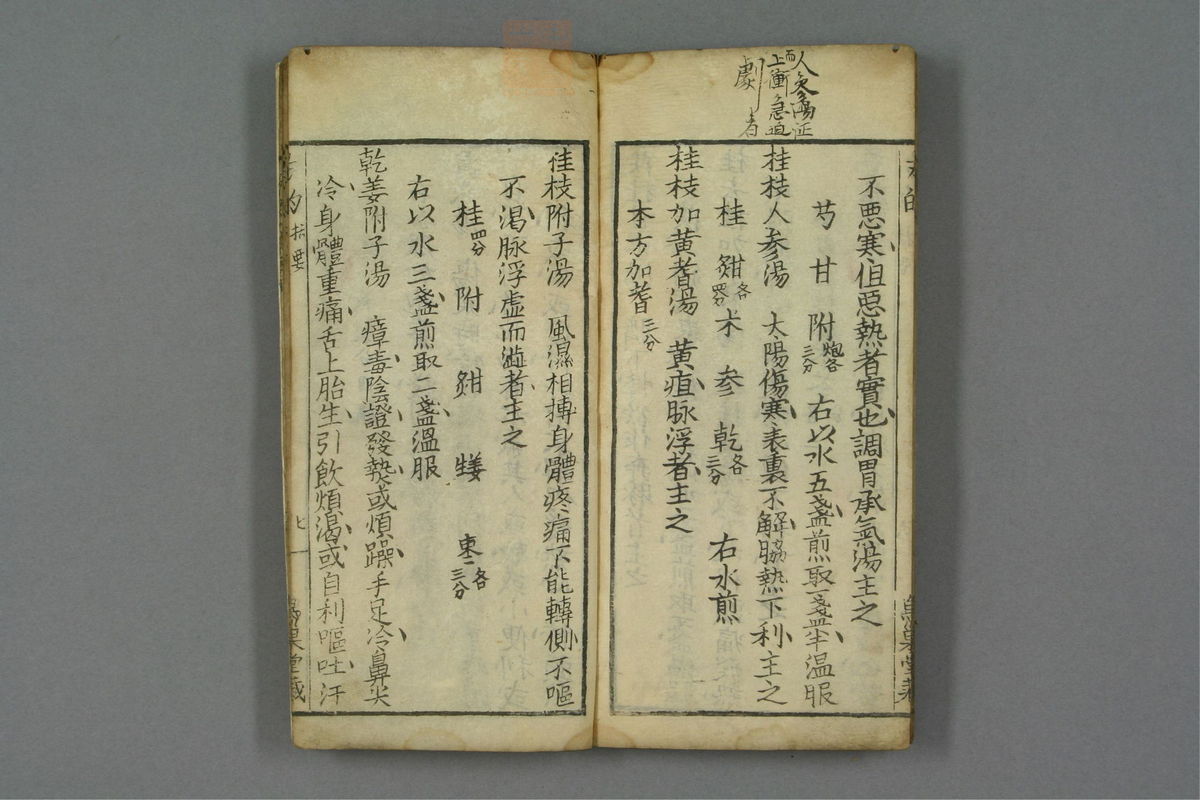 人参湯証
而上衝急迫
劇者
不悪寒但惡熱者實也調胃承氣湯主之
芍 甘 附炮各三分 右以水五盞煎取一盞半温服
桂枝人参湯 太陽傷寒表裏不解脇熱下利主之
桂 甜各四分 朮 参 乾各三分 右水煎
桂枝加黄耆湯 黄疸脉浮者主之
本方加耆三分
桂枝附子湯 風濕相摶身體疼痛不能轉側不嘔
不渇脉浮虚而澁者主之
桂四分 附 甜 姜 棗各二三分
右以水三盞煎取二盞温服
乾姜附子湯 瘴毒陰證發熱或煩躁手足冷鼻尖
冷身體重痛舌上胎生引飲煩渇或自利嘔吐汗